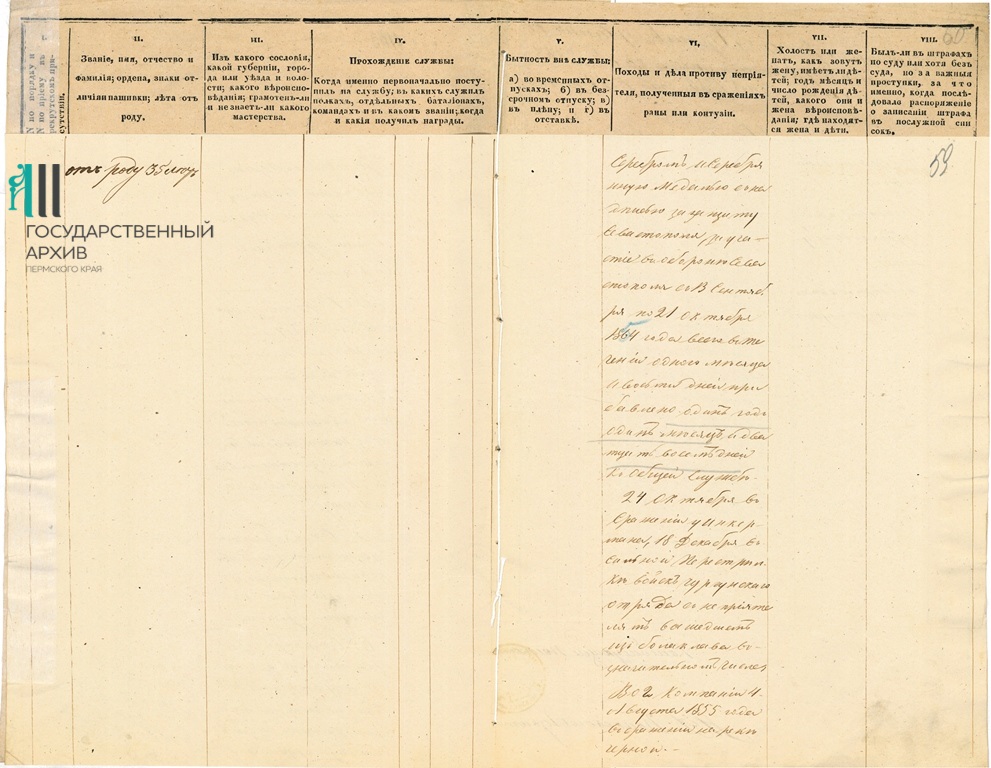 I.
№ по порядку и
№ по времени въ
рекрутскомъ при-
сутствіи.
II.
Званіе, имя, отчество и
фамилія; ордена, знаки от-
личія и нашивки; лѣта отъ
роду.
III.
Изъ какого сословія,
какой губерніи, горо-
да или уѣзда и воло-
сти; какого вѣроиспо-
вѣданія; грамотенъ-ли
и не знаетъ-ли какого
мастерства.
IV.
Прохожденіе службы:
Когда именно первоначально посту-
пилъ на службу; въ какихъ служилъ
полкахъ, отдѣльныхъ баталіонахъ,
командахъ и въ какомъ званіи; когда
и какія получилъ награды.
V.
Бытность внѣ службы:
а) во временныхъ от-
пускахъ; б) въ без-
срочномъ отпуску; в)
въ плѣну; и г) въ
отставкѣ.
VI.
Походы и дѣла противу непрія-
теля, полученныя въ сраженіяхъ
раны или контузіи.
VII.
Холостъ или же-
натъ, какъ зовутъ
жену, имѣетъ ли дѣ-
тей; годъ мѣсяцъ и
число рожденія дѣ-
тей, какого они и
жена вѣроисповѣ-
данія; гдѣ находят-
ся жена и дѣти.
VIII.
Былъ-ли въ штрафахъ
по суду или хотя безъ
суда, но за важные
проступки, за что
именно, когда послѣ-
довало распоряженіе
о записаніи штрафа
въ послужной спи
сокъ.
60
59
отъ роду 35 лѣтъ
ГОСУДАРСТВЕННЫЙ
АРХИВ
ПЕРМСКОГО КРАЯ
Серебромъ, и серебря
ную медалью съ на
дписью за защиту
Севастополя, за уча-
стіе въ оборонѣ Сева
стополя съ 13 Сентяб
ря по 21 Октября
1854 года всего въ те
ченіи одного мѣсяца
и восьми дней при
бавлено одинъ годъ
одинъ мѣсяцъ и два
тцать восемь дней
къ общей службѣ.
24 Октября въ
сраженіи у Инкер-
мана, 18 Декабря въ
сильной перестрѣл
кѣ войскъ Чургунскаго
отряда съ непріяте
лемъ вышедшемъ
изъ Балаклава въ
значительномъ числѣ,
Въ компаніи 4
Августа 1855 года
въ сраженіи на рекѣ
Черной.